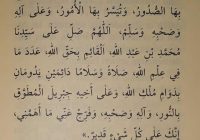 بِهَا الصُّدُورُ، وَتُيَسَّرُ بِهَا الْأُمُورُ، وَعَلَى آلِهِ
وَصَحْبِهِ وَسَلِّمْ، اللَّهُمَّ صَلِّ عَلَى سَيِّدِنَا
مُحَمَّدِ بْنِ عَبْدِ اللَّهِ، الْقَائِمِ بِحَقِّ اللَّهِ، عَدَدَ مَا
فِي عِلْمِ اللَّهِ، صَلَاةً وَسَلَامًا دَائِمَيْنِ يَدُومَانِ
بِدَوَامِ مُلْكِ اللَّهِ، وَعَلَى أَخِيهِ جِبْرِيلَ الْمُطَوَّقِ
بِالنُّورِ، وَآلِهِ وَصَحْبِهِ، وَفَرِّجْ عَنِّي مَا أَهَمَّنِي،
إِنَّكَ عَلَى كُلِّ شَيْءٍ قَدِيرٌ.»